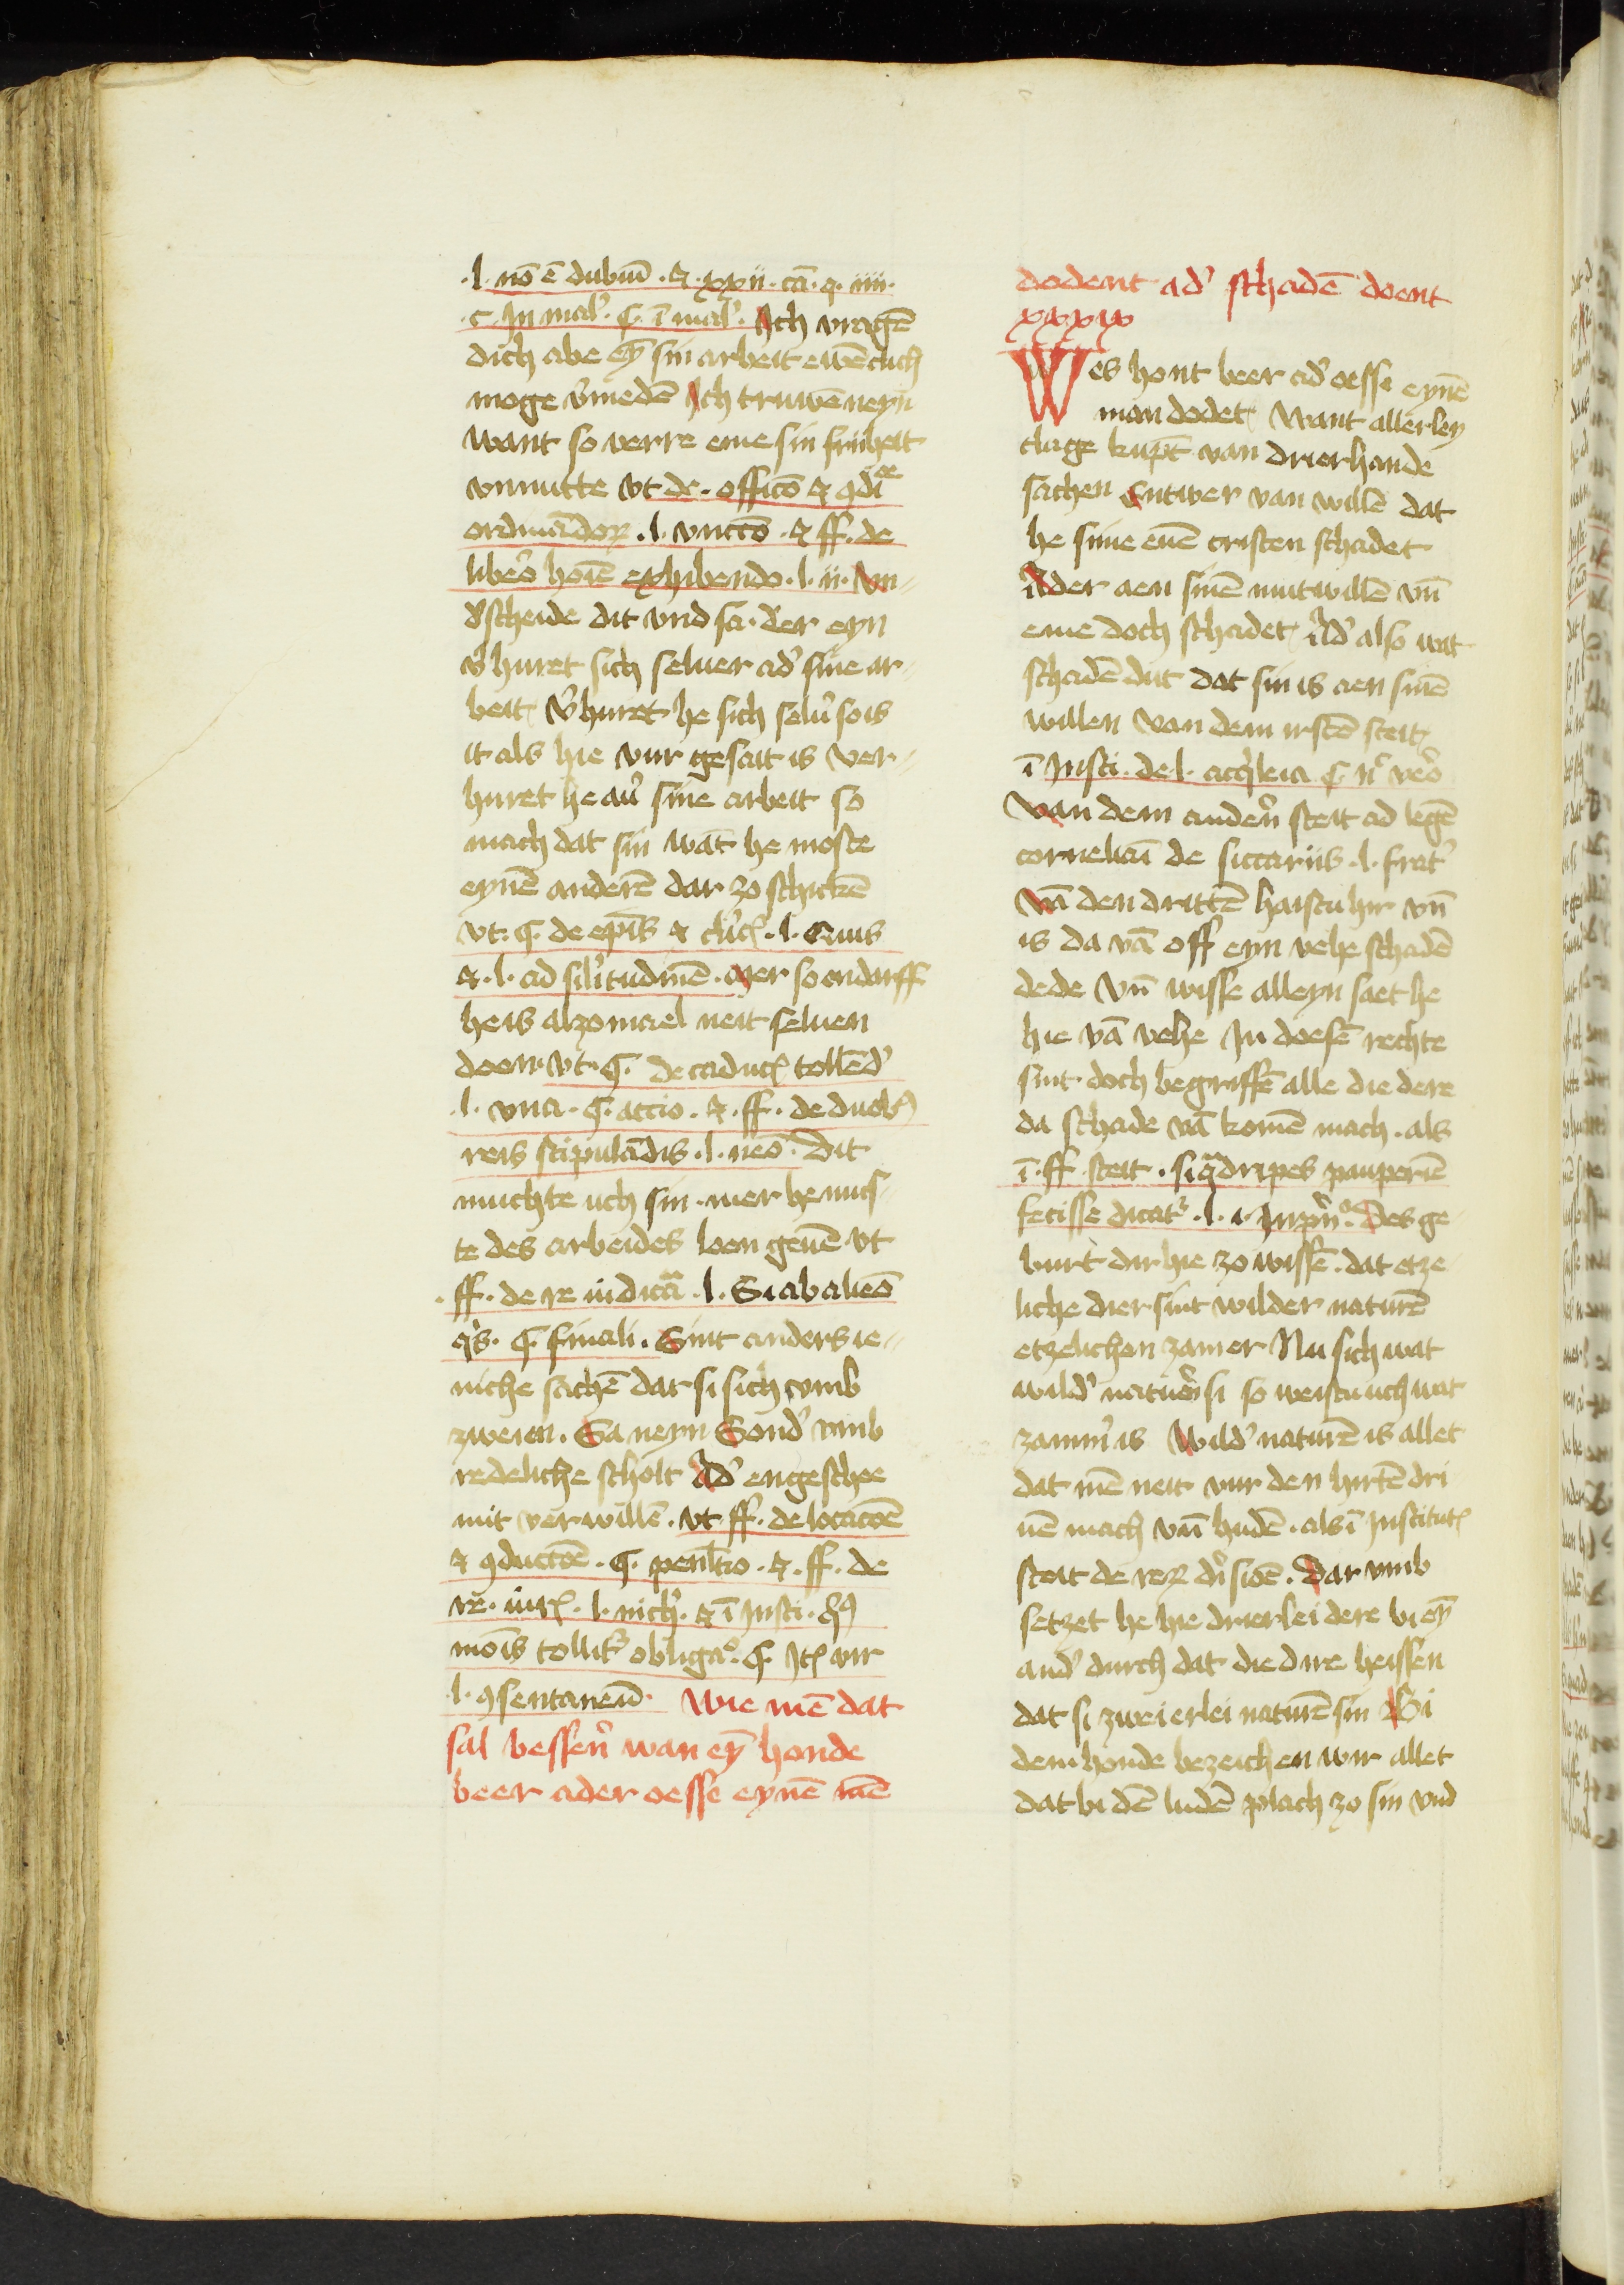 .l. nō ē dubiū .⁊. xxii. cā. q. iiii.
.c. In mal'. ¶. ī mal'. Ich vragē
dich abe eȳ sin arbeit ewēclich
moge v'miedē Ich truwē neyn
want so verre eme sin friheit
vnnutte vt de. officō ⁊ 9di
ordinādoꝝ .l. vnicco .⁊ ff. de
libēo hoīe exhibendo .l. ii. Vn-
d'scheide dit vnd sa. der eyn
v'huret sich seluer ad' sine ar-
beit v'huret he sich selu' so is
it als hie vur gesait is ver-
huret he au' sine arbeit so
mach dat sin wāt he moste
eynē anderē dar zo schickē
vt. C. de ep̄is ⁊ cl'ic .l. Quis
⁊ .l. ad sil'itudinē . mer so endarff
he is alzomael neit seluen
doen. vt. C. de caduc tollēd'
.l. vna. ¶. accio .⁊. ff. de duob9
reis stipulādis .l. neō. Dit
muchte uch sin . mer he mus-
te des arbeides loen geuē vt
.ff. de re iudicā .l. Si ab alieō
q's. ¶. finali. Sint anders ie-
niche sachē dat si sich vmb
zweien. Sa neyn Sond' vmb
redeliche scholt Ad' engeschee
mit verwillē. vt ff. de locatōe
⁊ 9ductōe. ¶. penl'tio .⁊. ff. de
re. iur .l. nich'. ⁊ ī Insti. q'9
mōis tollit' obligao. ¶. Itē
.l. 9sentaneū. Wie mē dat
sal bessern' wan eȳ honde
beer ader oesse eynē mē
dodent ad' schadē doent
xxxix
Wes hont beer ad' oesse eynē
man dodet Want allerley
clage kūpt van drierhande
sachen Entwer van willē dat
he sime euē cristen schadet
Ader aen sinē mutwillē vn̄
eme doch schadet Ad' also wat
schadē dut dat sin is aen sinē
willen Van dem irstē steit
ī Insti. de .l. acq'leia ¶. n' veō
Van dem andern' steit ad legē
corneliā de siccariis .l. frat'
Vā den drittē haistu hir vn̄
is da vā off eyn vehe schadē
dede Vn̄ wisse alleyn saet he
hie vā vehe In doesē rechte
sint doch begriffē alle die dere
da schade vā komē mach. als
ī. ff. steit. si q̄dripes pauperiē
fecisse dicat' .l. i. In pri'. Des ge-
burt dir hie zo wissē. dat etze-
liche dier sint wilder naturē
etzelichen zamer Nu sich wat
wild' naturē si so weistu uch wat
zamm' is Wild' naturē is allet
dat mē neit vur den hirtē dri
uē mach vn̄ hudē. als ī Institut
steit de reꝝ d'isiōe. Dar vmb
setzet he hie drierlei dere bi eȳ
and' durch dat die dire heissen
dat si zweierlei naturē sin Bi
dem honde bezeichen wir allet
dat bi dē ludē plach zo sin vnd